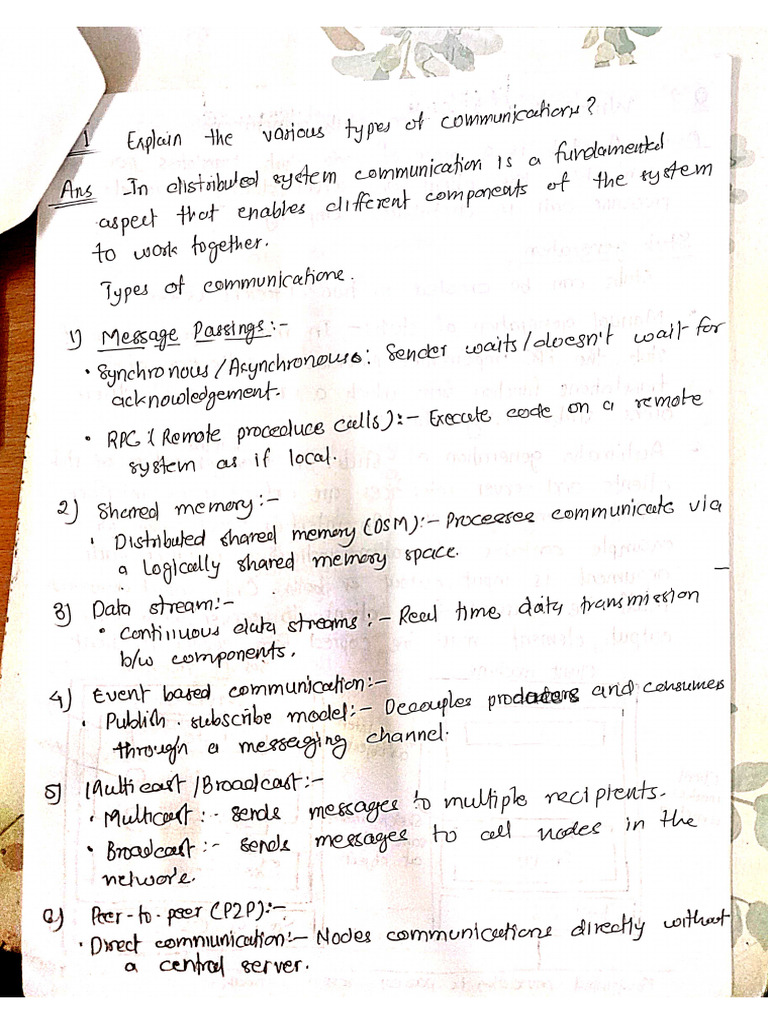 1 Explain the various types of communications?
Ans In distributed system communication is a fundamental
aspect that enables different components of the system
to work together.
Types of communications.
1) Message Passings:-
• Synchronous/Asynchronous: Sender waits/doesn't wait for
acknowledgement.
• RPC: (Remote procedure calls):- Execute code on a remote
system as if local.
2) Shared memory:-
• Distributed shared memory (DSM):- Processes communicate via
a logically shared memory space.
3) Data stream:-
• Continuous data streams:- Real time data transmission
b/w components.
4) Event based communication:-
• Publish-subscribe model:- Decouples producers and consumers
through a messaging channel.
5) Multicast/Broadcast:-
• Multicast:- sends messages to multiple recipients.
• Broadcast:- sends messages to all nodes in the
network.
6) Peer-to-peer (P2P):-
• Direct communication:- Nodes communications directly without
a central server.